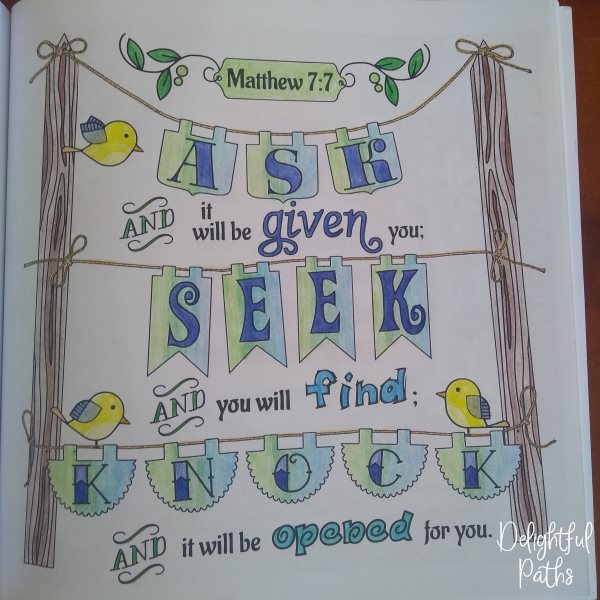 Matthew 7:7
ASK
AND it will be given you;
SEEK
AND you will find;
KNOCK
AND it will be opened for you.
Delightful Paths